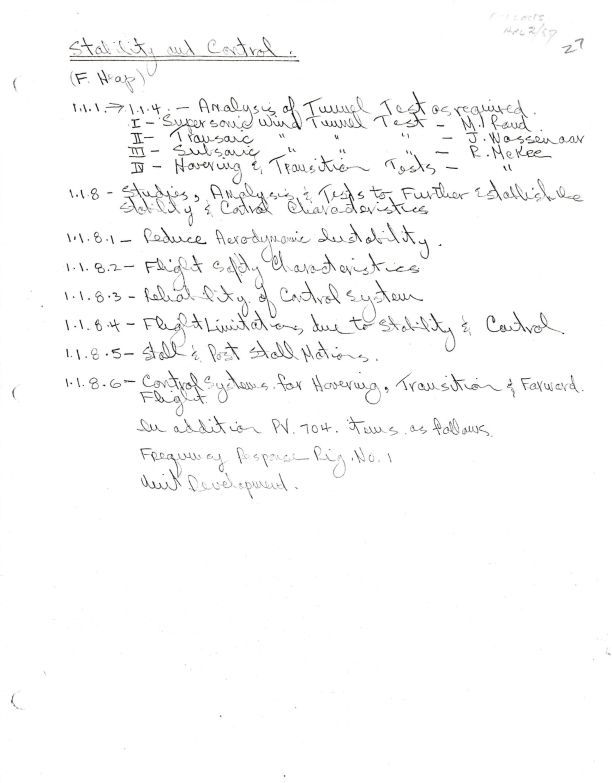 27
Stability and Control.
(F. Heap)
1.1.1. → 1.1.4. - Analysis of Tunnel Test as required.
I - Supersonic Wind Tunnel Test - M. Rand
II - Transonic " " " - J. Wassenaar
III - Subsonic " " " - R. McKee
IV - Hovering & Transition Tests - "
1.1.8 - Studies, Analysis & Tests to Further Establish the
Stability & Cotrol Characteristics
1.1.8.1 - Reduce Aerodynamic Instability.
1.1.8.2 - Flight Safety Characteristics
1.1.8.3 - Reliability of Control System
1.1.8.4 - Flight Limitations due to Stability & Control.
1.1.8.5 - Stall & Post Stall Motions.
1.1.8.6 - Control Systems for Hovering, Transition & Forward.
Flight
In addition PV. 704. items as follows
Frequency Response Rig. No. 1
Unit Development.